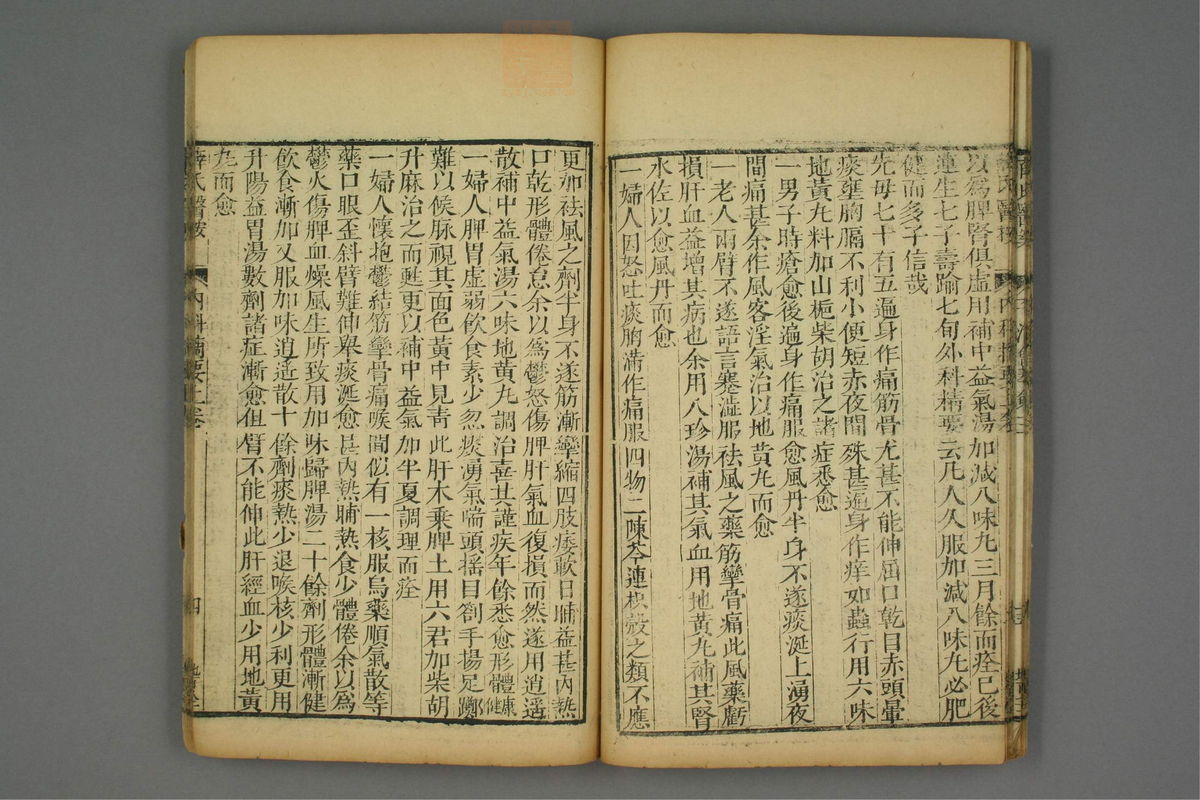 以爲脾腎俱虛用補中益氣湯加減八味丸三月餘而痊已後
連生七子壽踰七旬外科精要云凡人久服加減八味丸必肥
健而多子信哉
先母七十有五遍身作痛筋骨尤甚不能伸屈口乾目赤頭暈
痰壅胸膈不利小便短赤夜間殊甚遍身作痒如蟲行用六味
地黃丸料加山梔柴胡治之諸症悉愈
一男子時瘡愈後遍身作痛服愈風丹半身不遂痰涎上湧夜
間痛甚余作風客淫氣治以地黃丸而愈
一老人兩臂不遂語言蹇澁服祛風之藥筋攣骨痛此風藥虧
損肝血益增其病也余用八珍湯補其氣血用地黃丸補其腎
水佐以愈風丹而愈
一婦人因怒吐痰胸滿作痛服四物二陳芩連枳殼之類不應
更加祛風之劑半身不遂筋漸攣縮四肢痿軟日晡益甚內熱
口乾形體倦怠余以爲鬱怒傷脾肝氣血復損而然遂用逍遙
散補中益氣湯六味地黃丸調治喜其謹疾年餘悉愈形體康健
一婦人脾胃虛弱飲食素少忽痰湧氣喘頭搖目劄手揚足擲
難以候脉視其面色黃中見靑此肝木乘脾土用六君加柴胡
升麻治之而甦更以補中益氣加半夏調理而痊
一婦人懷抱鬱結筋攣骨痛喉間似有一核服烏藥順氣散等
藥口眼歪斜臂難伸舉痰涎愈甚內熱晡熱食少體倦余以爲
鬱火傷脾血燥風生所致用加味歸脾湯二十餘劑形體漸健
飲食漸加又服加味逍遙散十餘劑痰熱少退喉核少利更用
升陽益胃湯數劑諸症漸愈但臂不能伸此肝經血少用地黃
丸而愈
薛氏醫按 內科摘要上卷 四